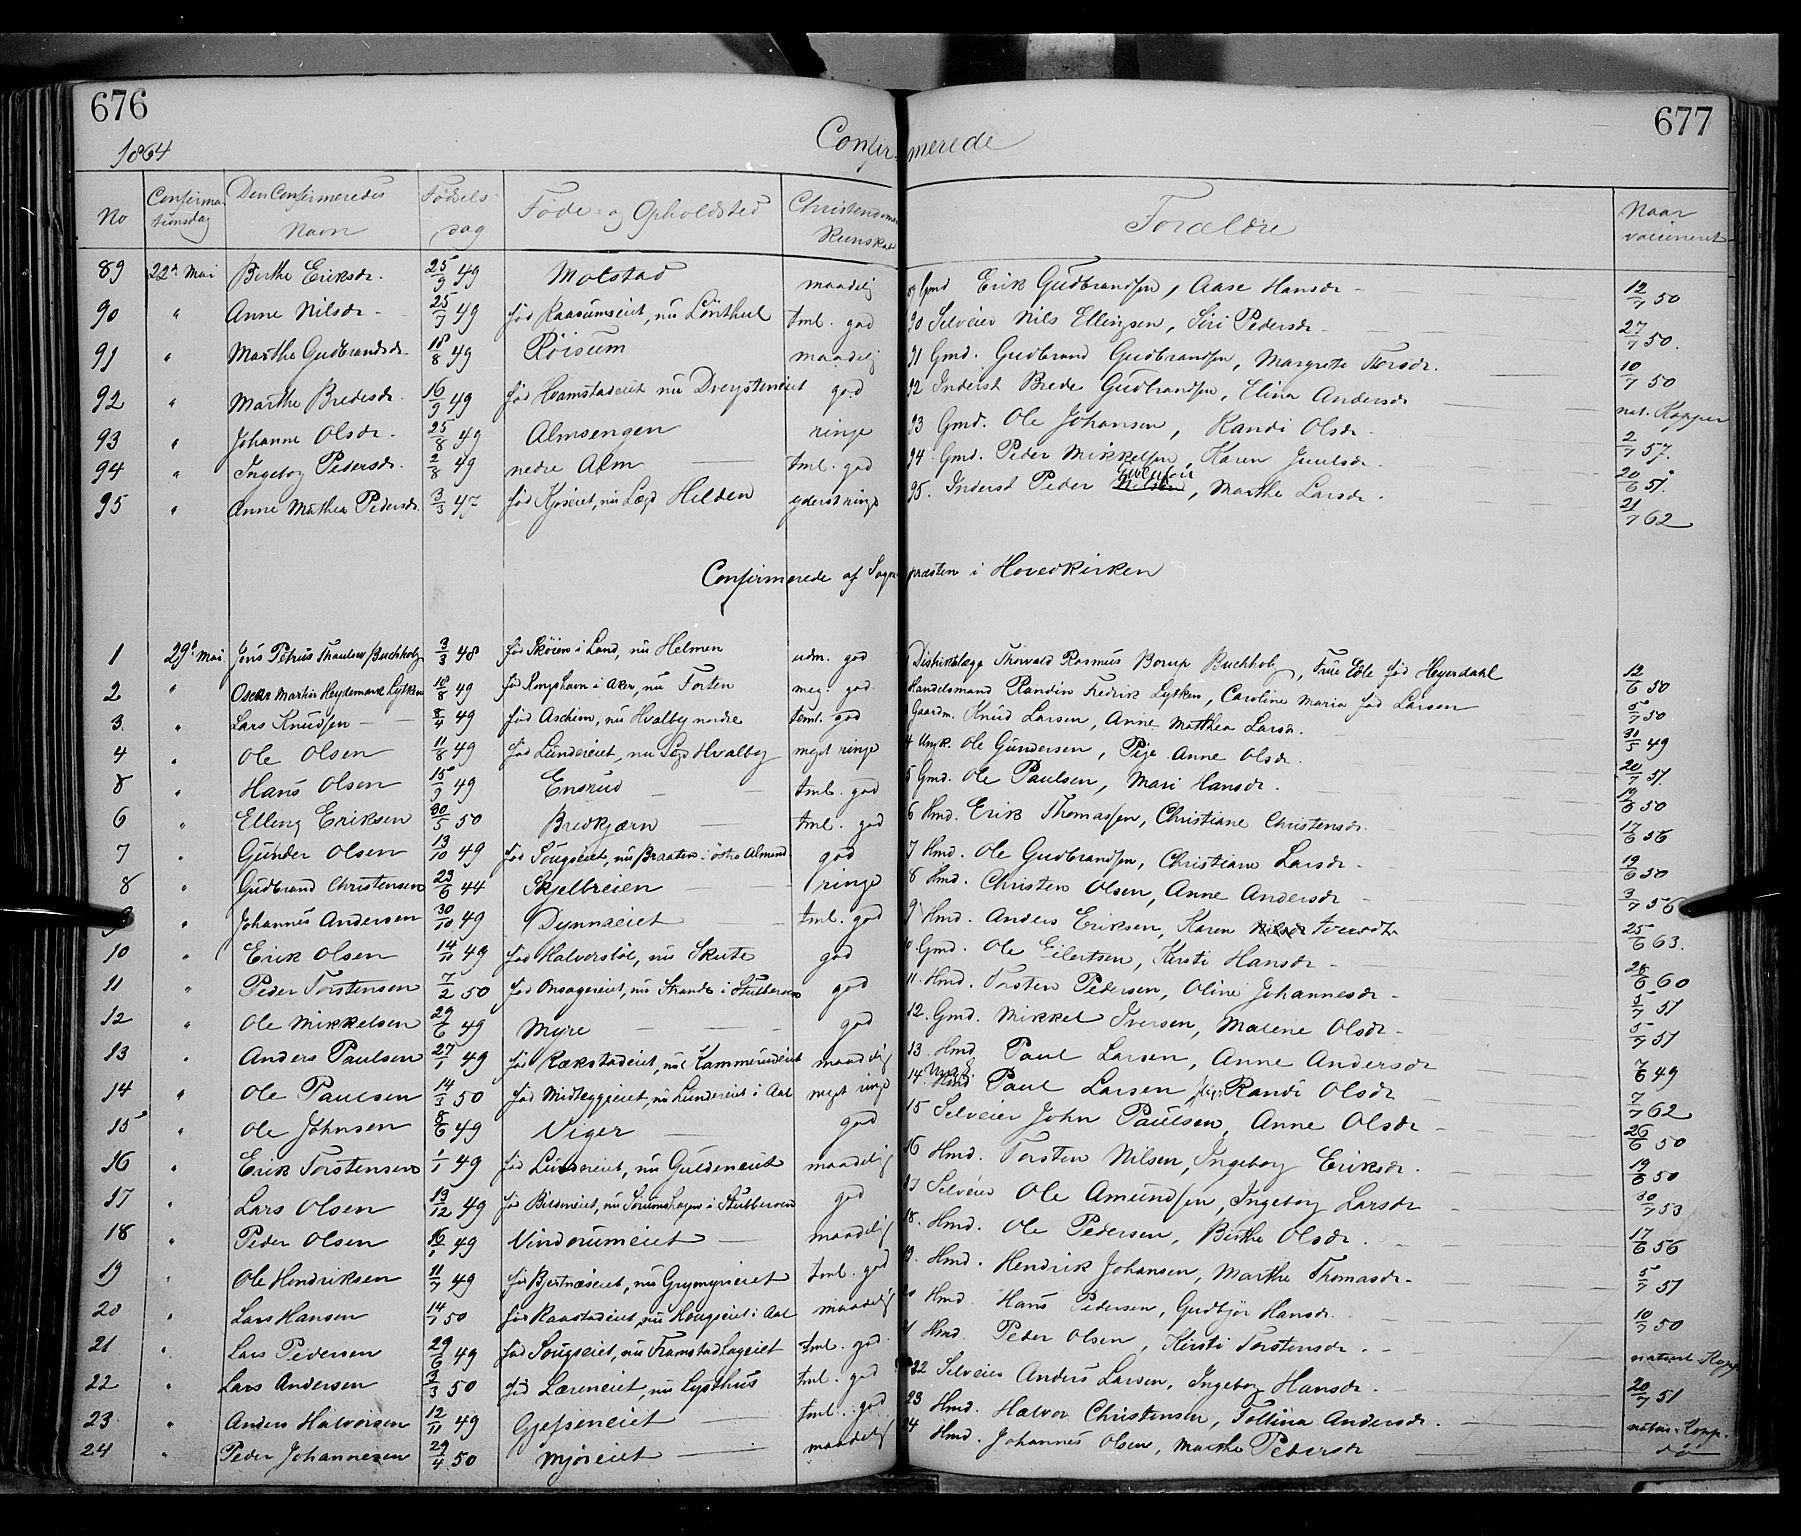 676
677
1864
Confirmerede
No | Confirmationsdag | Den Confirmeredes Navn | Fødselsdag | Føde- og Opholdsted | Christendoms Kunskab | Forældre | Naar vaccineret
89 | 22de Mai | Berthe Eriksdr. | 25/9 49 | Molstad | maadelig | 89 Gmd Erik Gudbrandsen, Aase Hansdr | 12/7 50
90 | " | Anne Nilsdr. | 25/7 49 | fød Raasumseiet, nu Lönthul | tml. god | 90 Selveier Nils Ellingsen, Siri Pedersdr | 27/7 50.
91 | " | Marthe Gudbrandsdr. | 18/8 49 | Röisum | maadelig | 91 Gmd. Gudbrand Gudbrandsen, Margrete Torsdr. | 10/7 50
92 | " | Marthe Bredesdr. | 16/9 49 | fød Hvamstadeiet nu Dverysteneiet | god | 92 Inderst Brede Gudbrandsen, Elina Andersdr | nat. Kopper
93 | " | Johanne Olsdr. | 25/8 49 | Almsengen | ringe | 93 Gmd. Ole Johansen, Randi Olsdr. | 2/7 57.
94 | " | Ingebor Pedersdr. | 2/8 49 | nedre Alm | tml. god | 94. Gmd. Peder Mikkelsen, Karen Juulsdr. | 20/6 51.
95 | " | Anne Mathea Pedersdr. | 3/3 47 | fød Kjöseiet, nu Lægd Helden | yderst ringe | 95. Inderst Peder Nilsen, Marthe Larsdr. | 21/7 62
Confirmerede af Sognepræsten i Hovedkirken
1 | 29de Mai | Jens Petrus Thaulow Buchholz | 3/3 48 | fød Skoien i Land, nu Helmen | udm. god | Distriktslæge Thorvald Rasmus Borup Buchholz, Frue Edle fød Heyerdahl | 12/6 50
2 | " | Oscar Martin Heydemark Lytken | 18/8 49 | fød Kongshavn i Aker, nu Forten | meg. god. | Handelsmand Randin Fredrik Lytken, Caroline Maria fød Larsen | 5/7 50
3. | " | Lars Knudsen | 8/4 49 | fød Aschim, nu Hvalby nordre | teml. god | Gaardm. Knud Larsen, Anne Matthea Larsdr. | 31/5 49
4 | " | Ole Olsen | 11/8 49 | fød Lundereiet, nu Lægd Hvalby | meget ringe | 4 Ungk. Ole Gundersen, Pige Anne Olsdr. | 20/7 51.
5 | " | Hans Olsen | 15/9 49 | Ensrud | tml. god | 5 Gmd. Ole Paulsen, Mari Hansdr. | 19/6 50
6 | " | Elleng Eriksen | 30/5 50 | Bredkjærn | tml. god | 6 Hmd. Erik Thomassen, Christiane Christensdr. | 17/6 56
7 | " | Gunder Olsen | 13/10 49 | fød Sougseiet, nu Braaten i östre Almend | god | 7 Hmd. Ole Gudbrandsen, Christiane Larsdr. | 19/6 50
8 | " | Gudbrand Christensen | 23/6 44 | Skjelbreien | ringe | 8 Hmd. Christen Olsen, Anne Andersdr | 3/7 56
9 | " | Johannes Andersen | 30/10 49 | Dynnaeiet | tml. god | 9 Hmd. Anders Eriksen, Karen Nilsdr Iversdtr | 25/6 63.
10 | " | Erik Olsen | 14/11 49 | fød Halverstöl, nu Skute | god | Gmd. Ole Eilertsen, Kersti Hansdr | 28/6 60
11 | " | Peder Torstensen | 7/2 50 | fød Onsagereiet, nu Strande i Stubberoen | god | 11. Hmd. Torsten Pedersen, Oline Johannesdr | 5/7 51
12 | " | Ole Mikkelsen | 29/6 49 | Myre | god | 12. Gmd. Mikkel Iversen, Malene Olsdr | 5/7 51
13 | " | Anders Paulsen | 27/1 49 | fød Rækstadeiet, nu Kammerudeiet | maadelig | 13. Hmd. Paul Larsen, Anne Andersdr | 7/6 49
14 | " | Ole Paulsen | 14/3 50 | fød Midteggeeiet, nu Lundereiet i Aal | meget ringe | 14. Ungk. Hmd Paul Larsen Pige Randi Olsdr | 7/7 62
15 | " | Ole Johnsen | 8/6 49 | Viger | god | 15 Selveier John Paulsen, Anne Olsdr | 26/6 50
16 | " | Erik Torstensen | 1/1 49 | fød Lundereiet, nu Guldeneiet | maadelig | 16 Hmd. Torsten Nilsen, Ingeborg Eriksdr. | 19/6 50
17 | " | Lars Olsen | 13/12 49 | fød Bilseneiet, nu Sörumshagen i Stubberoen | god | 17 Selveier Ole Amundsen, Ingeborg Larsdr | 30/7 53
18 | " | Peder Olsen | 16/1 49 | Vindorumeiet | maadelig | 18. Hmd. Ole Pedersen, Berthe Olsdr. | 17/6 56
19 | " | Ole Hendriksen | 11/7 49 | fød Bjertnæseiet, nu Grymyreiet | tml. god | 19. Hmd. Hendrik Johansen, Marthe Thomasdr | 5/7 51
20 | " | Lars Hansen | 14/7 50 | fød Raastadeiet, nu Hougseiet i Aal | maadelig | Hmd. Hans Pedersen, Gudbjör Hansdr. | 10/7 50
21 | " | Lars Pedersen | 29/6 49 | fød Sougseiet, nu Framstad Lageiet | tml. god | 21 Hmd. Peder Olsen, Kersti Torstensdr. | naturl. Kopp.
22 | " | Lars Andersen | 3/3 50 | fød Læreneiet, nu Lysthus | tml. god | 22 Selveier Anders Larsen, Ingebor Hansdr. | 20/7 51
23 | " | Anders Halvorsen | 12/11 49 | Gjefseneiet | tml. god | 23 Hmd. Halvor Christensen, Tollina Andersdr. | natur. Kopp.
24 | " | Peder Johannesen | 29/4 50 | Mjöreiet | maadelig | 24 Hmd. Johannes Olsen, Marthe Pedersdr | do